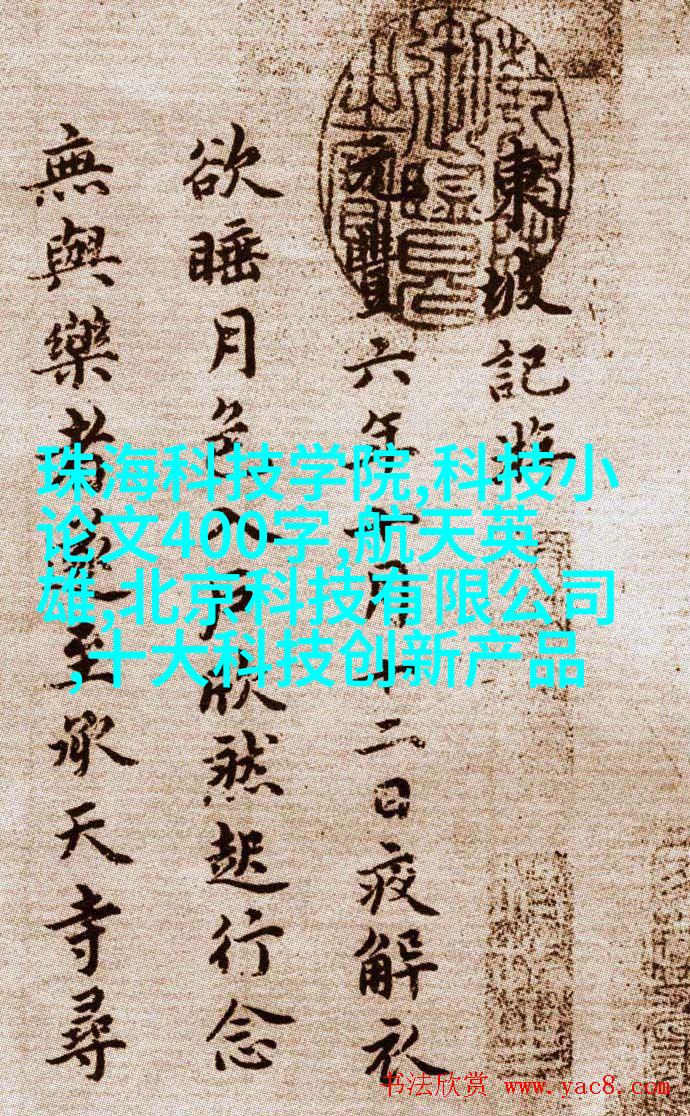 東坡記遊
元豐六年十月十二日夜解衣
欲睡月色入戶欣然起行念
無與樂者遂至承天寺尋
珠海科技学院,科技小
论文400字,航天英
雄,北京科技有限公司
,十大科技创新产品
书法欣赏 www.yac8.com